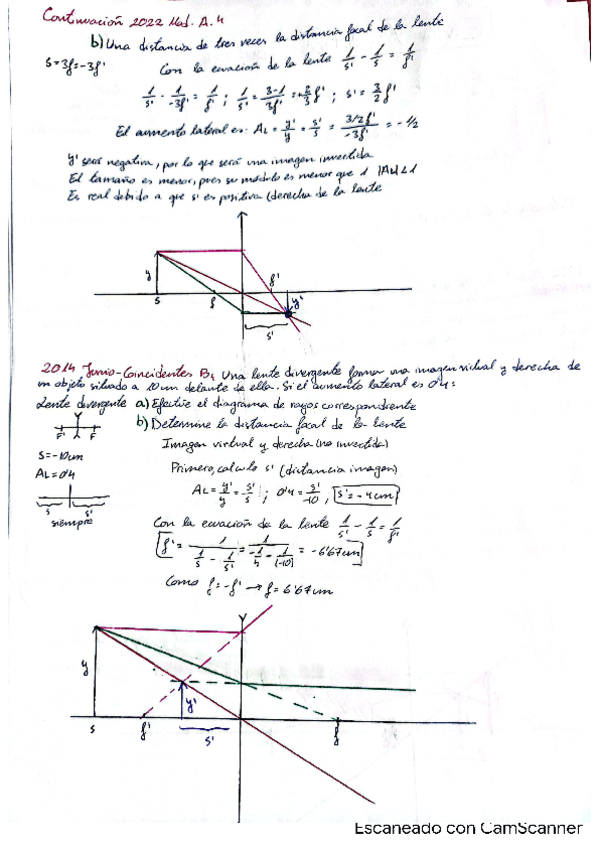 Continuación 2022 Mod. A.4
b) Una distancia de tres veces la distancia focal de la lente
S=3f=-3f'
Con la ecuación de la lente 1/s' - 1/s = 1/f'
1/s' - 1/-3f' = 1/f' ; 1/s' = 3-1/3f' = +2/3 f' ; s' = 3/2 f'
El aumento lateral es: AL = y'/y = s'/s = 3/2f'/-3f' = -1/2
y' será negativa, por lo que será una imagen invertida
El tamaño es menor, pues su módulo es menor que 1 |AL|<1
Es real debido a que s' es positiva (derecha de la lente
y
s
f
f'
y'
s'
2014 Junio-Coincidentes B, Una lente divergente forma una imagen virtual y derecha de
un objeto situado a 10cm delante de ella. Si el aumento lateral es 0'4:
Lente divergente a) Efectúe el diagrama de rayos correspondiente
b) Determine la distancia focal de la lente
F' F
Imagen virtual y derecha (no invertida)
S=-10cm
Primero, calculo s' (distancia imagen)
AL=0'4
AL = y'/y = s'/s ; 0'4 = s'/-10 , s' = -4cm
s s'
siempre
Con la ecuación de la lente 1/s' - 1/s = 1/f'
f' = 1/(1/s - 1/s') = 1/(-1/4 - 1/(-10)) = -6'67cm
Como f = -f' → f = 6'67cm
y
s
f'
y'
s'
f
Escaneado con CamScanner